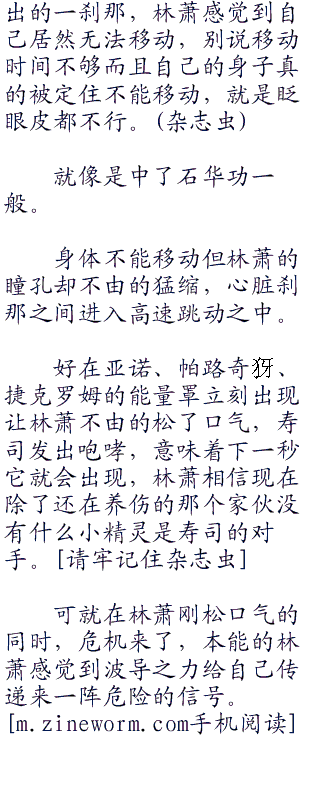 出的一刹那，林萧感觉到自
己居然无法移动，别说移动
时间不够而且自己的身子真
的被定住不能移动，就是眨
眼皮都不行。(杂志虫)
就像是中了石华功一
般。
身体不能移动但林萧的
瞳孔却不由的猛缩，心脏刹
那之间进入高速跳动之中。
好在亚诺、帕路奇犽、
捷克罗姆的能量罩立刻出现
让林萧不由的松了口气，寿
司发出咆哮，意味着下一秒
它就会出现，林萧相信现在
除了还在养伤的那个家伙没
有什么小精灵是寿司的对
手。[请牢记住杂志虫]
可就在林萧刚松口气的
同时，危机来了，本能的林
萧感觉到波导之力给自己传
递来一阵危险的信号。
[m.zineworm.com手机阅读]